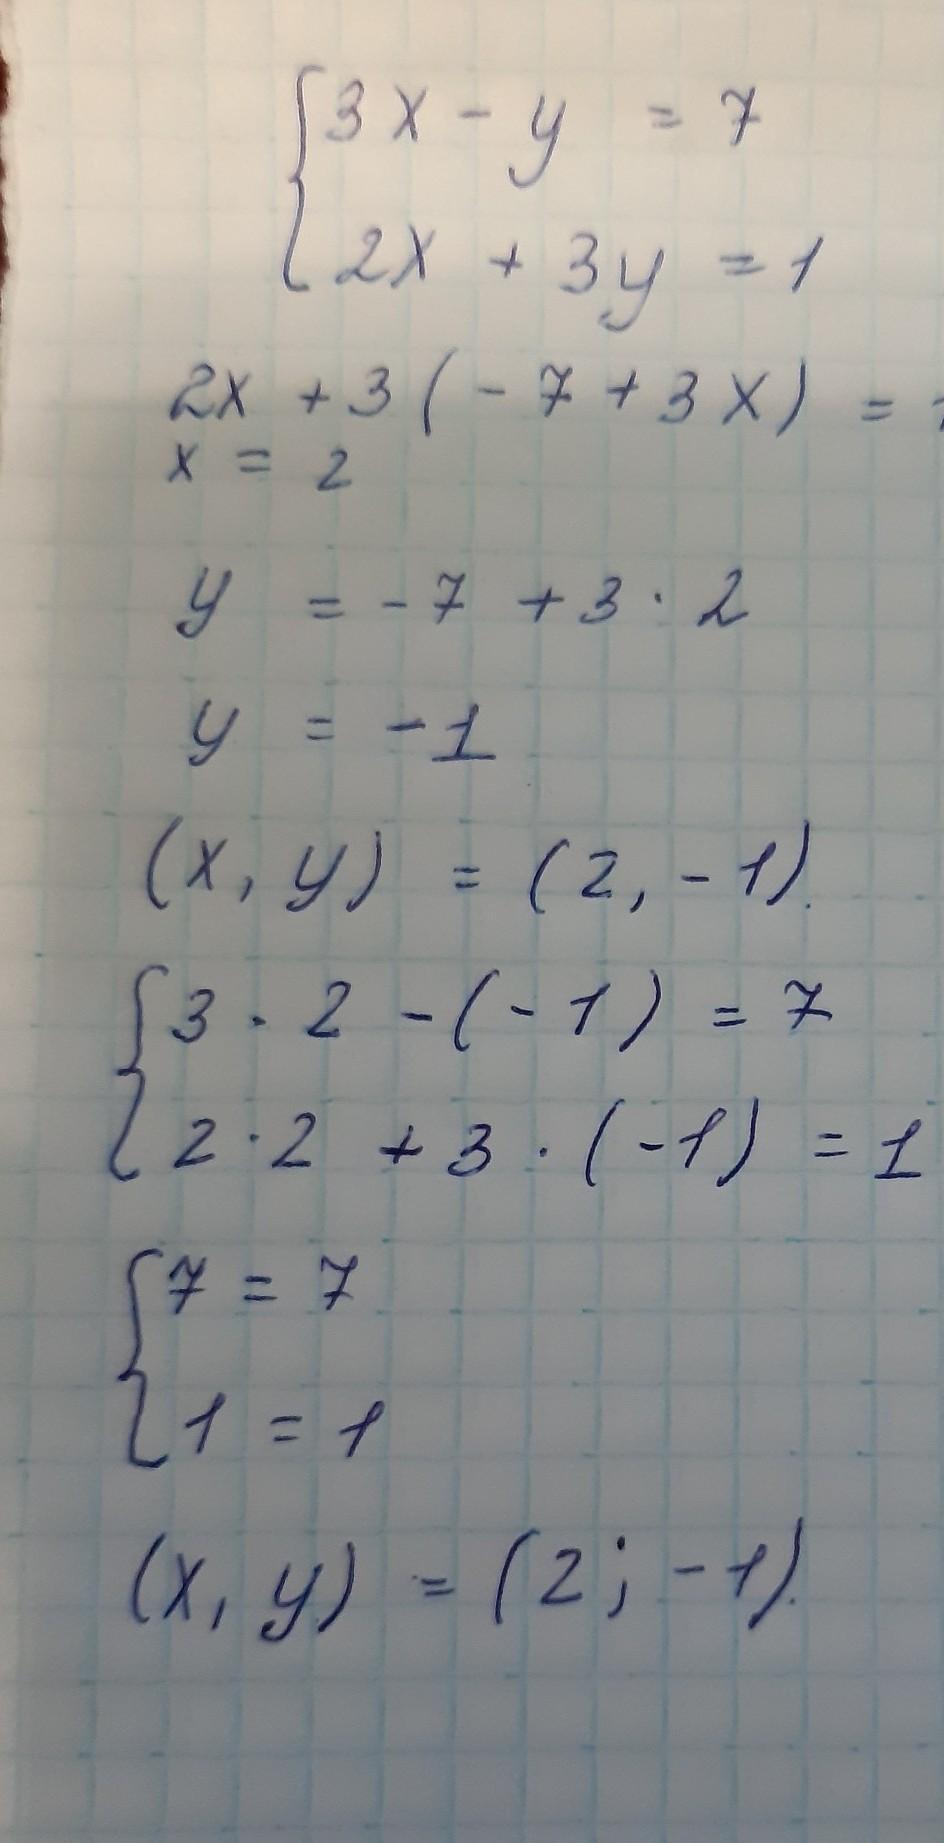 {3x - y = 7
2x + 3y = 1
2x + 3(-7 + 3x) = 1
x = 2
y = -7 + 3 · 2
y = -1
(x, y) = (2, -1).
{3 · 2 -(-1) = 7
2 · 2 + 3 · (-1) = 1
{7 = 7
1 = 1
(x, y) = (2; -1).